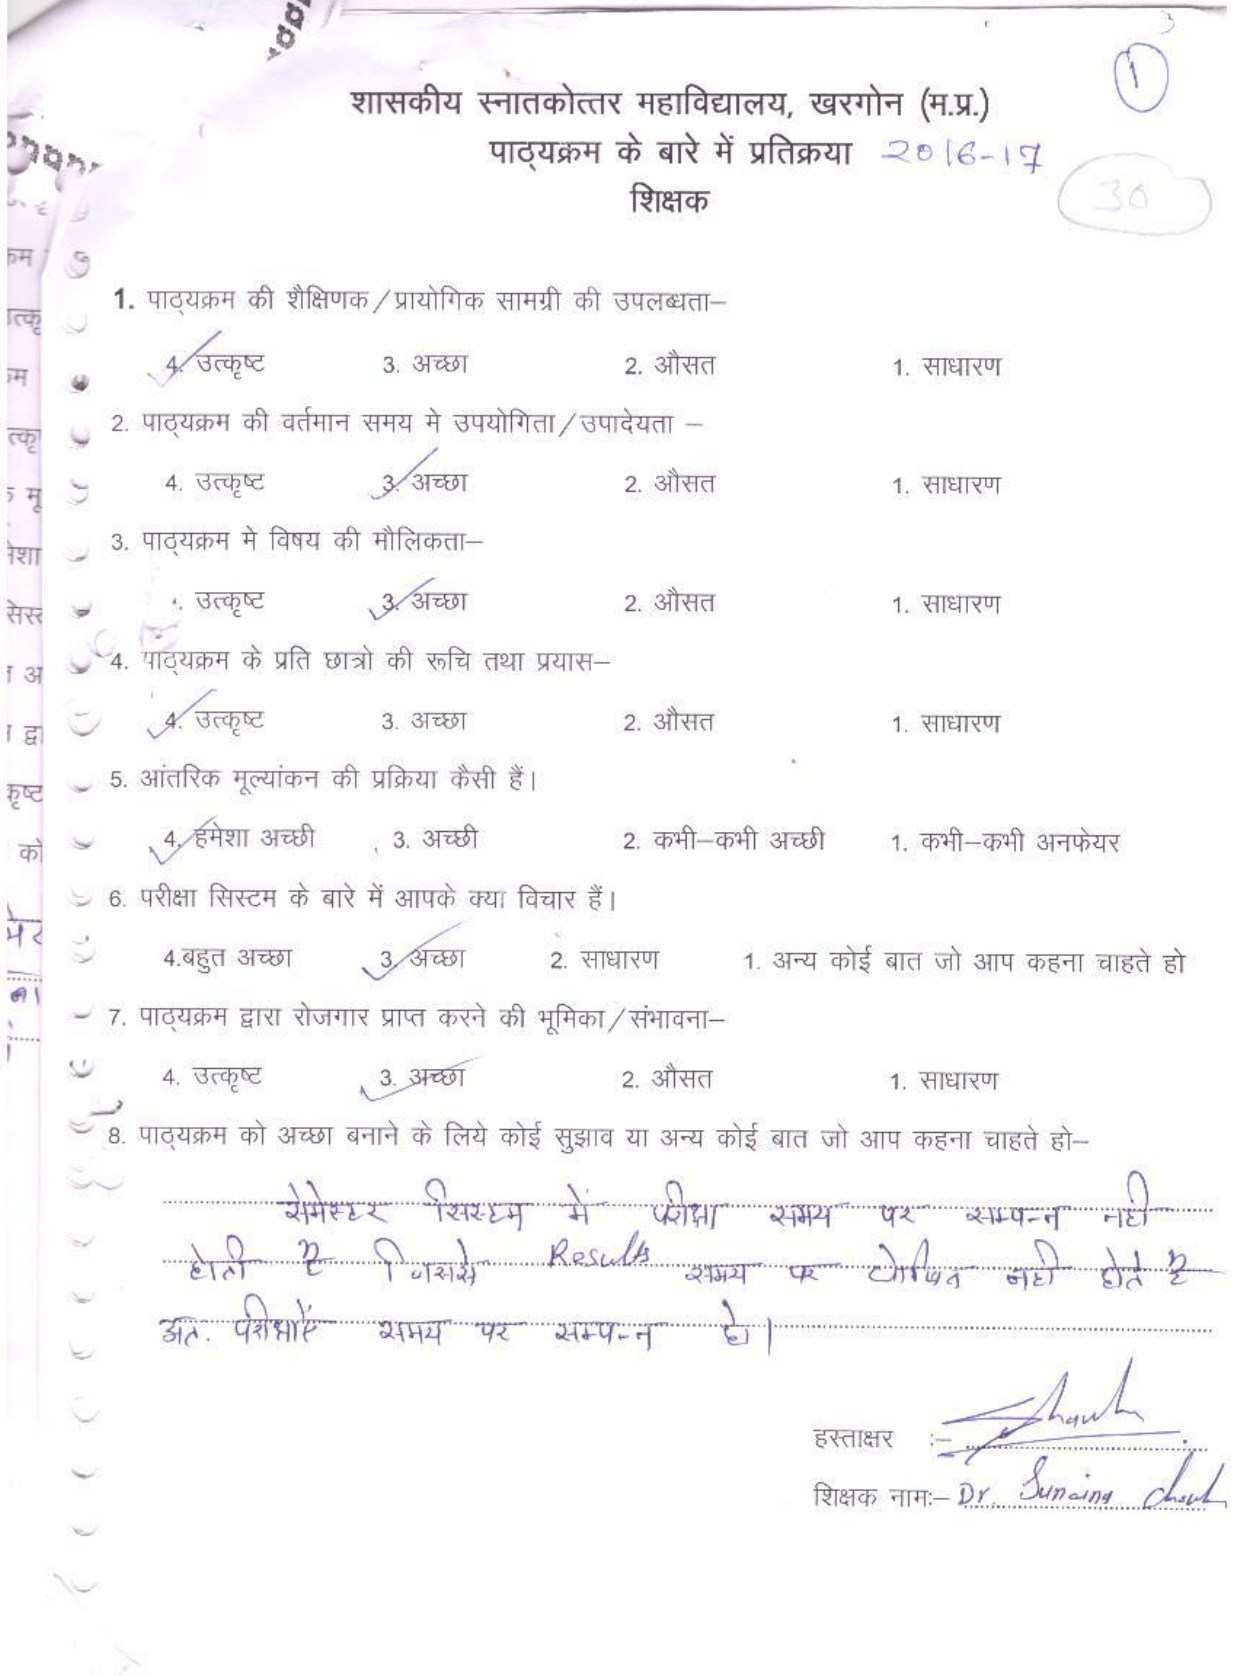 1
शासकीय स्नातकोत्तर महाविद्यालय, खरगोन (म.प्र.)
पाठ्यक्रम के बारे में प्रतिक्रया 2016-17
शिक्षक
30
1. पाठ्यक्रम की शैक्षिणक/प्रायोगिक सामग्री की उपलब्धता–
4. उत्कृष्ट 3. अच्छा 2. औसत 1. साधारण
2. पाठ्यक्रम की वर्तमान समय मे उपयोगिता/उपादेयता –
4. उत्कृष्ट 3. अच्छा 2. औसत 1. साधारण
3. पाठ्यक्रम मे विषय की मौलिकता–
. उत्कृष्ट 3. अच्छा 2. औसत 1. साधारण
4. पाठ्यक्रम के प्रति छात्रो की रूचि तथा प्रयास–
4. उत्कृष्ट 3. अच्छा 2. औसत 1. साधारण
5. आंतरिक मूल्यांकन की प्रक्रिया कैसी हैं।
4. हमेशा अच्छी 3. अच्छी 2. कभी–कभी अच्छी 1. कभी–कभी अनफेयर
6. परीक्षा सिस्टम के बारे में आपके क्या विचार हैं।
4.बहुत अच्छा 3. अच्छा 2. साधारण 1. अन्य कोई बात जो आप कहना चाहते हो
7. पाठ्यक्रम द्वारा रोजगार प्राप्त करने की भूमिका/संभावना–
4. उत्कृष्ट 3. अच्छा 2. औसत 1. साधारण
8. पाठ्यक्रम को अच्छा बनाने के लिये कोई सुझाव या अन्य कोई बात जो आप कहना चाहते हो–
सेमेस्टर सिस्टम में परीक्षा समय पर सम्पन्न नही
होती है जिससे Results समय पर घोषित नही होते है
अत. परीक्षाएँ समय पर सम्पन्न हो।
हस्ताक्षर :–
शिक्षक नामः– Dr. Sunaina